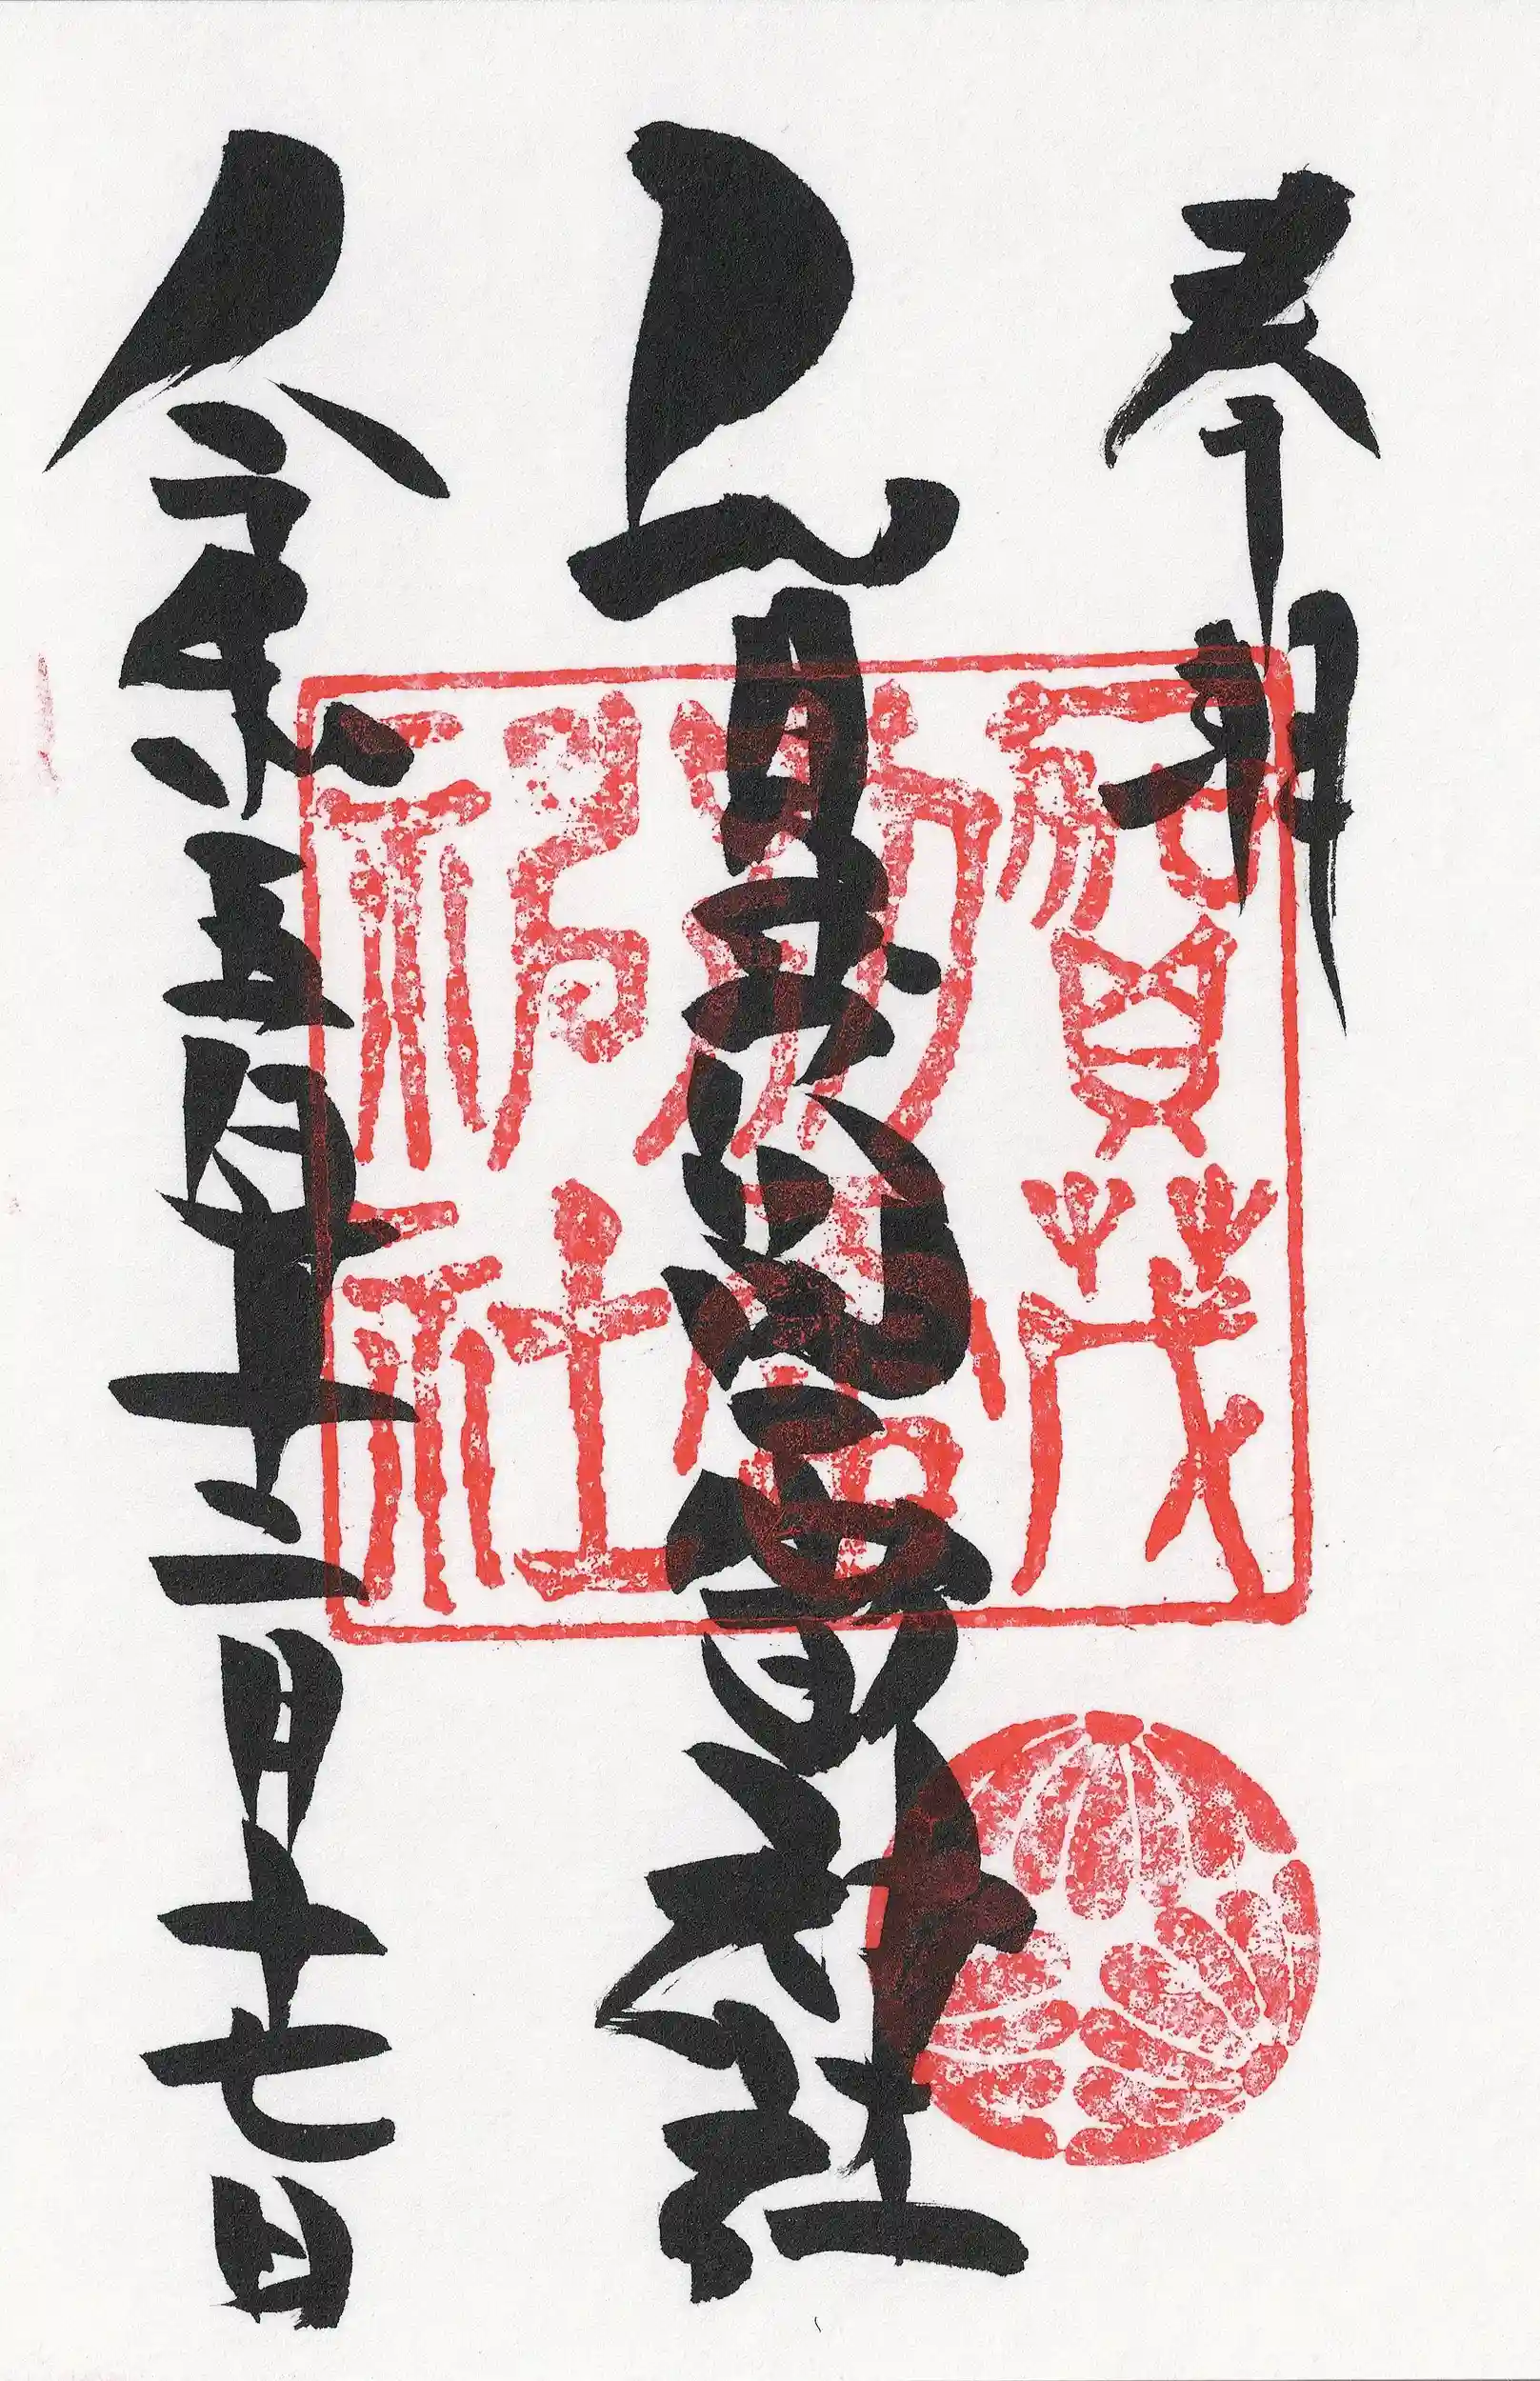 奉拝
賀茂別雷神社
令和五年十二月十七日
賀茂別雷神社